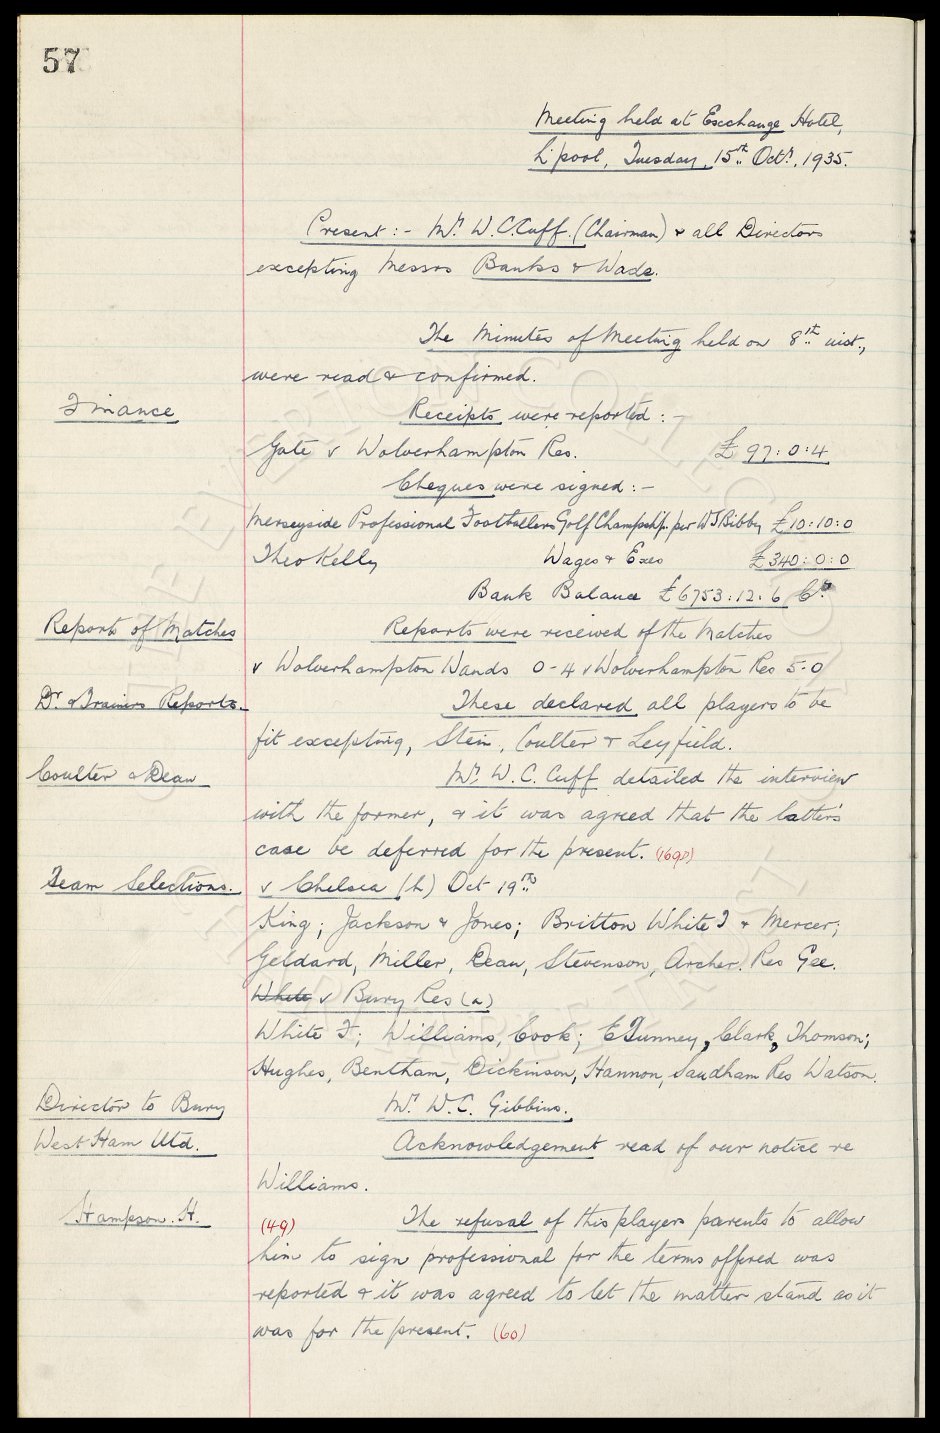 57
Meeting held at Exchange Hotel,
L'pool, Tuesday, 15th Octr., 1935.
Present :- Mr. W.C. Cuff. (Chairman) & all Directors
excepting Messrs Banks & Wade.
The Minutes of Meeting held on 8th inst.,
were read & confirmed.
Finance
Receipts were reported :-
Gate v Wolverhampton Res. £ 97:0:4
Cheques were signed :-
Merseyside Professional Footballers Golf Champshp. per WJ Bibby £10:10:0
Theo Kelly Wages & Exes £340:0:0
Bank Balance £6753:12:6 Cr.
Reports of Matches Reports were received of the Matches
v Wolverhampton Wands 0-4 v Wolverhampton Res 5-0
Dr. & Trainers Reports. These declared all players to be
fit excepting, Stein, Coulter & Leyfield.
Coulter & Dean Mr. W. C. Cuff detailed the interview
with the former, & it was agreed that the latter's
case be deferred for the present.
Team Selections. v Chelsea (h) Oct 19th
King; Jackson & Jones; Britton White T & Mercer;
Geldard, Miller, Dean, Stevenson, Archer. Res Gee.
White v Bury Res (a)
White F; Williams, Cook; E Tunney, Clark, Thomson;
Hughes, Bentham, Dickinson, Hannon, Sandham Res Watson.
Director to Bury Mr. W.C. Gibbins.
West Ham Utd. Acknowledgement read of our notice re
Williams.
Hampson. H. (49) The refusal of this players parents to allow
him to sign professional for the terms offered was
reported & it was agreed to let the matter stand as it
was for the present. (60)
THE EVERTON COLLECTION
CHARITABLE TRUST